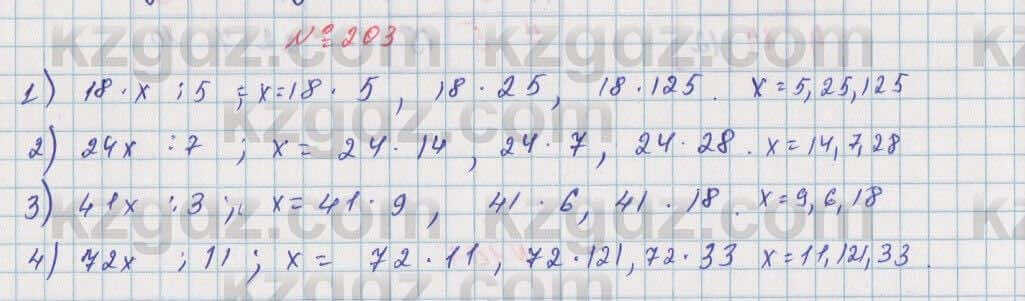 № 203
1) 18 · x : 5 ; x = 18 · 5 , 18 · 25 , 18 · 125 . x = 5, 25, 125
2) 24x : 7 ; x = 24 · 14 , 24 · 7 , 24 · 28 . x = 14, 7, 28
3) 41x : 3 ; x = 41 · 9 , 41 · 6 , 41 · 18 . x = 9, 6, 18
4) 72x : 11 ; x = 72 · 11 , 72 · 121 , 72 · 33 x = 11, 121, 33 .
kzgdz.com